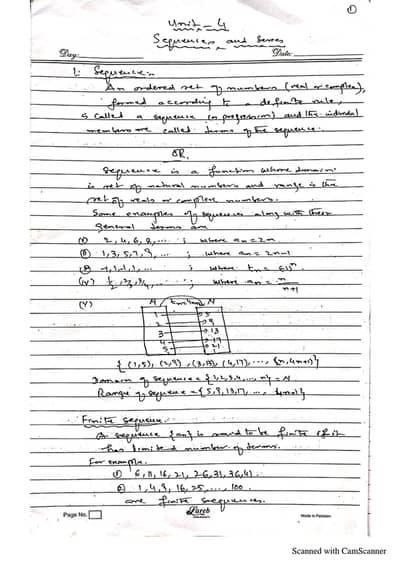 ①
Unit - 4
Sequences and Series
Day: Date:
1. Sequence:-
An ordered set of numbers (real or complex),
formed according to a definite rule,
is called a sequence (or progression) and the individual
members are called terms of the sequence.
OR.
Sequence is a function whose domain
is set of natural numbers and range is the
set of reals or complex numbers.
Some examples of sequences along with their
General terms are
(i) 2, 4, 6, 8, ..... ; where an = 2n
(ii) 1, 3, 5, 7, 9, ... ; where an = 2n-1
-1, 1, -1, 1, .... ; where tn = (-1)^n
(iv) 1/2, 2/3, 3/4, .... ; where an = n/n+1
(v) N N
1 5
2 9
3 13
4 17
5 21
{(1,5), (2,9), (3,13), (4,17), ..., (n, 4n+1)}
Domain of sequence = {1,2,3,4, ..., n} = N
Range of sequence = {5, 9, 13, 17, ... 4n+1}
Finite sequence.
A sequence {an} is said to be finite if it
has limited number of terms.
For example.
(i) 6, 11, 16, 21, 26, 31, 36, 41.
(ii) 1, 4, 9, 16, 25, ...., 100.
are finite sequences.
Page No. Made in Pakistan
Scanned with CamScanner